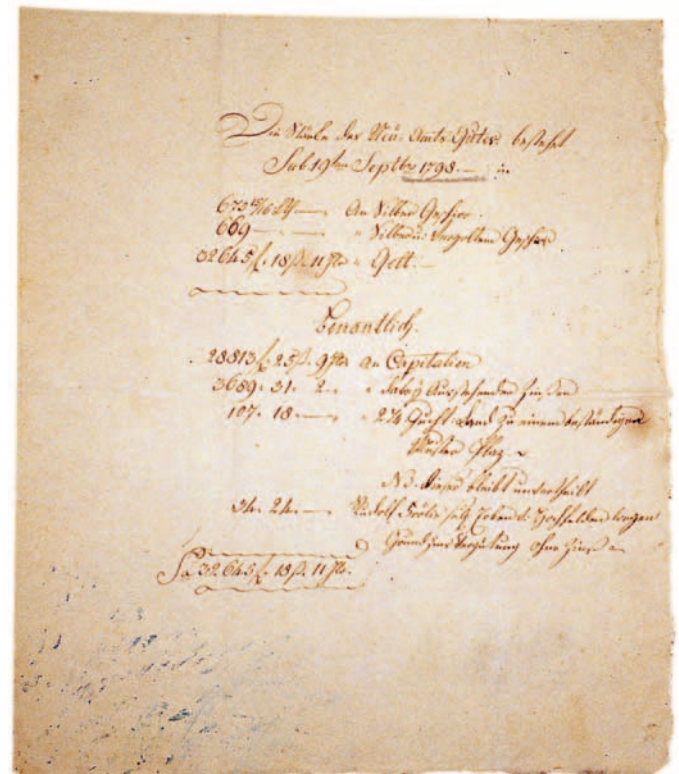 Die Stärke der Neü-Amts-Güter besteht
Sub 19ten Septbr 1798.— in
673 15/16 Lth — An Silber Geschirr.
669 — — " Silber u: vergoltem Geschirr
32645 f. 18 ß. 11 hlr " Gelt.—
Benantlich.
28813 f. 25 ß. 9 hlr An Capitalien
3689. 31. 2. " dabey Ausstehenden Zinsen
107. 18 — " 2¼ Jucht. Land zu einem beständigen
Muster Plaz
NB. dieser bleibt unvertheilt
34. 24. — Rudolf sel. Erben v. Hochfelden wegen
Grundzins Vergütung ohne Zinß
Sa 32645 f. 18 ß. 11 hlr.